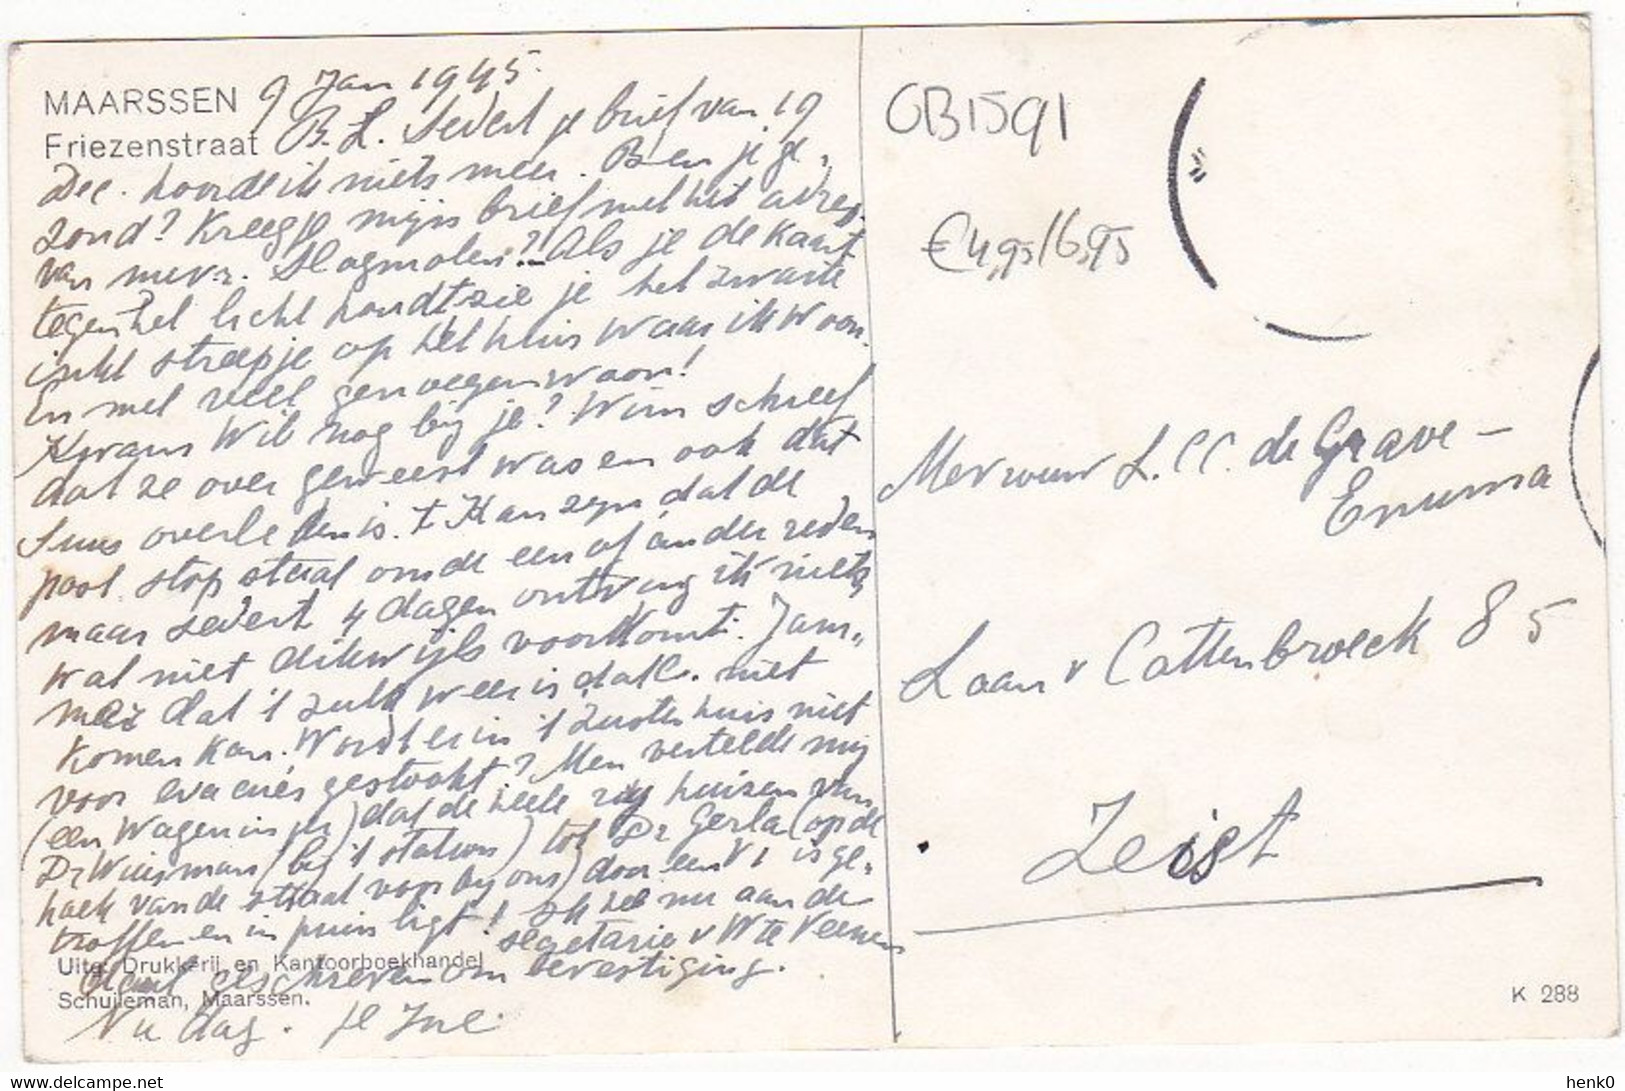 MAARSSEN 9 Jan 1945.
Friezenstraat B.L. Sedert je brief van 19
Dec. hoorde ik niets meer. Ben je ge-
zond? Kreeg je mijn brief met het adres
van mevr. Slagmolen? Als je de kaart
tegen het licht houdt zie je het zwarte
inkt streepje op het huis waar ik woon.
En met veel genoegen woon!
Kwam Wil nog bij je? Wim schreef
dat ze over geweest was en ook dat
Suus overleden is. † Kan zijn dat de
post stop staat om de een of andere reden
maar sedert 4 dagen ontving ik niets
wat niet dikwijls voorkomt. Jam-
mer dat 't zulk weer is dat C. niet
komen kan. Wordt er in 't Zusterhuis niet
voor evacués gestookt? Men vertelde mij
(een Wageninger) dat de heele rij huizen van
Dr Wiesman (bij 't station) tot Dr Gerla (op de
hoek van de straat voor bij ons) door een V1 is ge-
troffen en in puin ligt! Ik heb nu aan de
secretarie v W te Veenen
Uitg. Drukkerij en Kantoorboekhandel
daut geschreven om bevestiging.
Schuileman, Maarssen.
Nu dag. je Ine
OB1591
€4,95/6,95
Mevrouw L.C.C. de Grave-
Enuma
Laan v Cattenbroeck 85
Zeist
K 288
delcampe.net
henk0